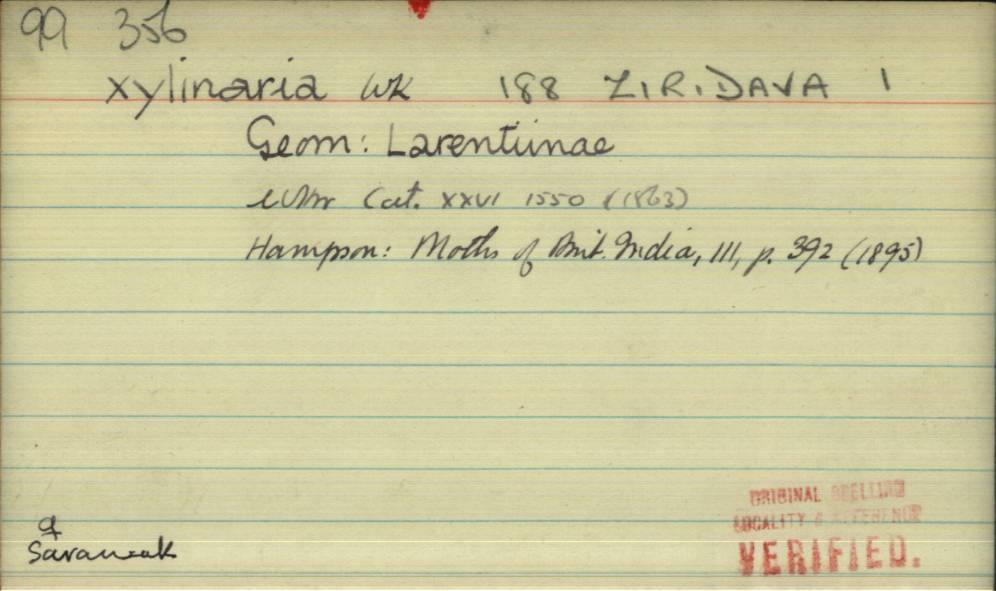 99 356
xylinaria WK 188 ZIRIDAVA 1
Geom: Larentiinae
Cat. XXVI 1550 (1863)
Hampson: Moths of Brit. India, III, p. 392 (1895)
♀
Sarawak
ORIGINAL SPELLING
LOCALITY & REFERENCE
VERIFIED.